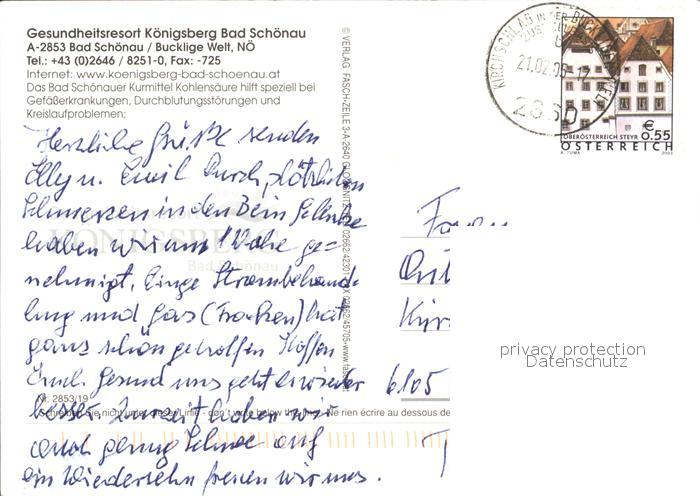 Gesundheitsresort Königsberg Bad Schönau
A-2853 Bad Schönau / Bucklige Welt, NÖ
Tel.: +43 (0)2646 / 8251-0, Fax: -725
Internet: www.koenigsberg-bad-schoenau.at
Das Bad Schönauer Kurmittel Kohlensäure hilft speziell bei
Gefäßerkrankungen, Durchblutungsstörungen und
Kreislaufproblemen;
Herzliche Grüße senden
Elly u. Emil Durch plötzlichen
Schmerzen in den Bein Gelenke
haben wir um 1 Woche ge=
nehmigt. Einige Strombehand-
lung und Gas (Trocken) hat
ganz schön geholfen Hoffen
Euch Gesund uns geht es wieder
besser. Zurzeit haben wir
auch genug Schnee auf
ein Wiedersehn freuen wir uns.
KÖNIGSBERG
Bad Schönau
Nr. 2853/19
Schreiben Sie nicht unter dieser Linie - don't write below this line - Ne rien écrire au dessous de
© VERLAG FASCH-ZEILE 3-A-2640 GLOGGNITZ
KIRCHSCHLAG IN DER BUCKLIGEN WELT
21.02.05-17
2860
€ 0.55
OBERÖSTERREICH STEYR
ÖSTERREICH
A. TUMA 2003
6105
privacy protection
Datenschutz